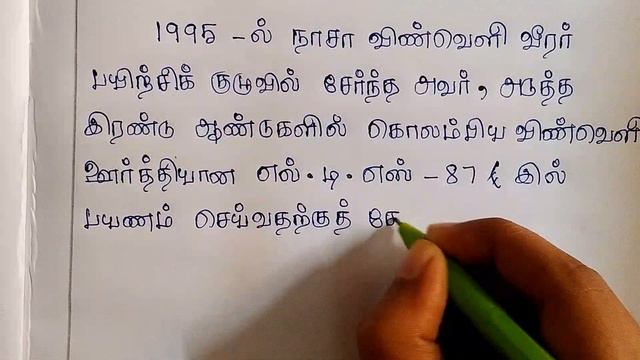 1995 -ல் நாசா விண்வெளி வீரர்
பயிற்சிக் குழுவில் சேர்ந்த அவர், அடுத்த
இரண்டு ஆண்டுகளில் கொலம்பிய விண்வெளி
ஊர்த்தியான எல்.டி.எஸ் -87 இல்
பயணம் செய்வதற்குத்